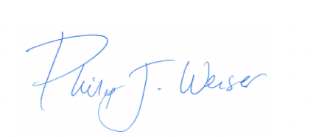 Philip J. Weiser